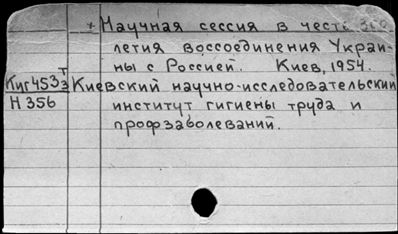 + Научная сессия в честь 300
летия воссоединения Украи-
ны с Россией. Киев, 1954.
Киг453 т/3 Киевский научно-исследовательский
Н 356 институт гигиены труда и
профзаболеваний.